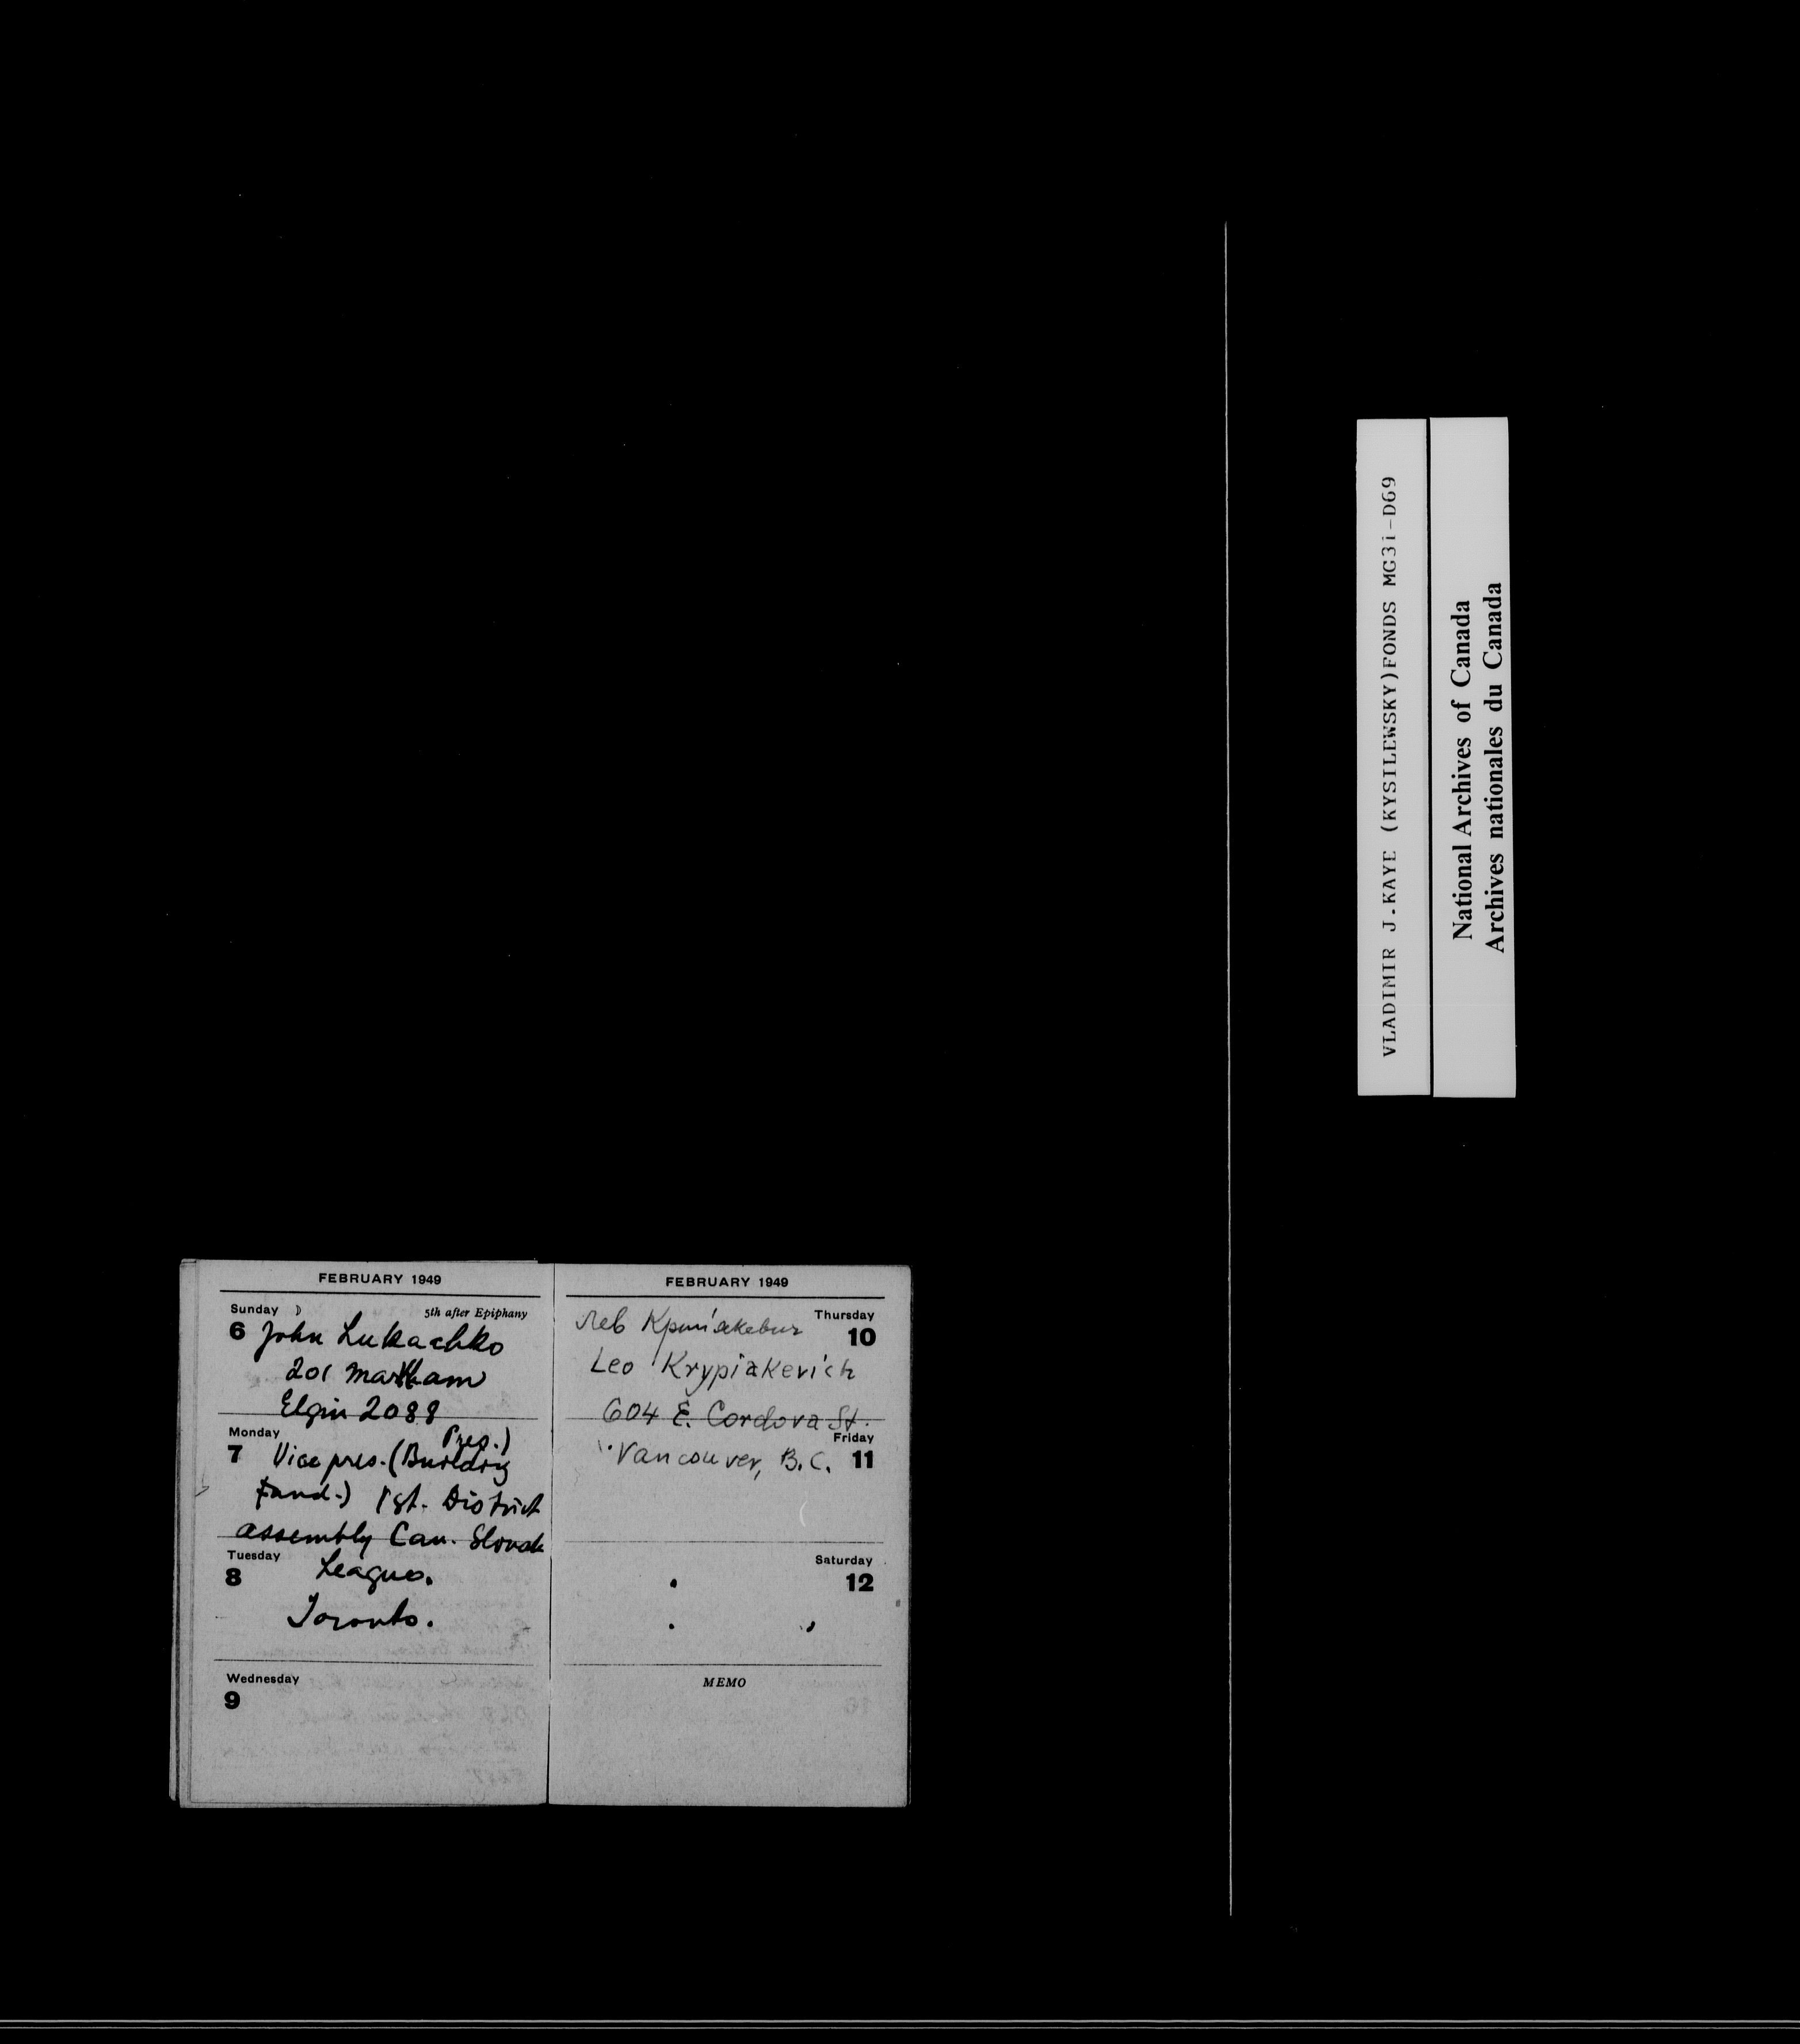 FEBRUARY 1949
Sunday
5th after Epiphany
6 John Lukachko
201 Markham
Elgin 2088
Monday
Pres.)
7 Vice pres. (Building
Fund.) 1st. District
assembly Can. Slovak
Tuesday
8 League.
Toronto.
Wednesday
9
FEBRUARY 1949
Thursday
Лев Крип'якевич 10
Leo Krypiakevich
604 E. Cordova St.
Friday
Vancouver, B.C. 11
Saturday
12
MEMO
VLADIMIR J.KAYE (KYSILEWSKY)FONDS MG3i-D69
National Archives of Canada
Archives nationales du Canada